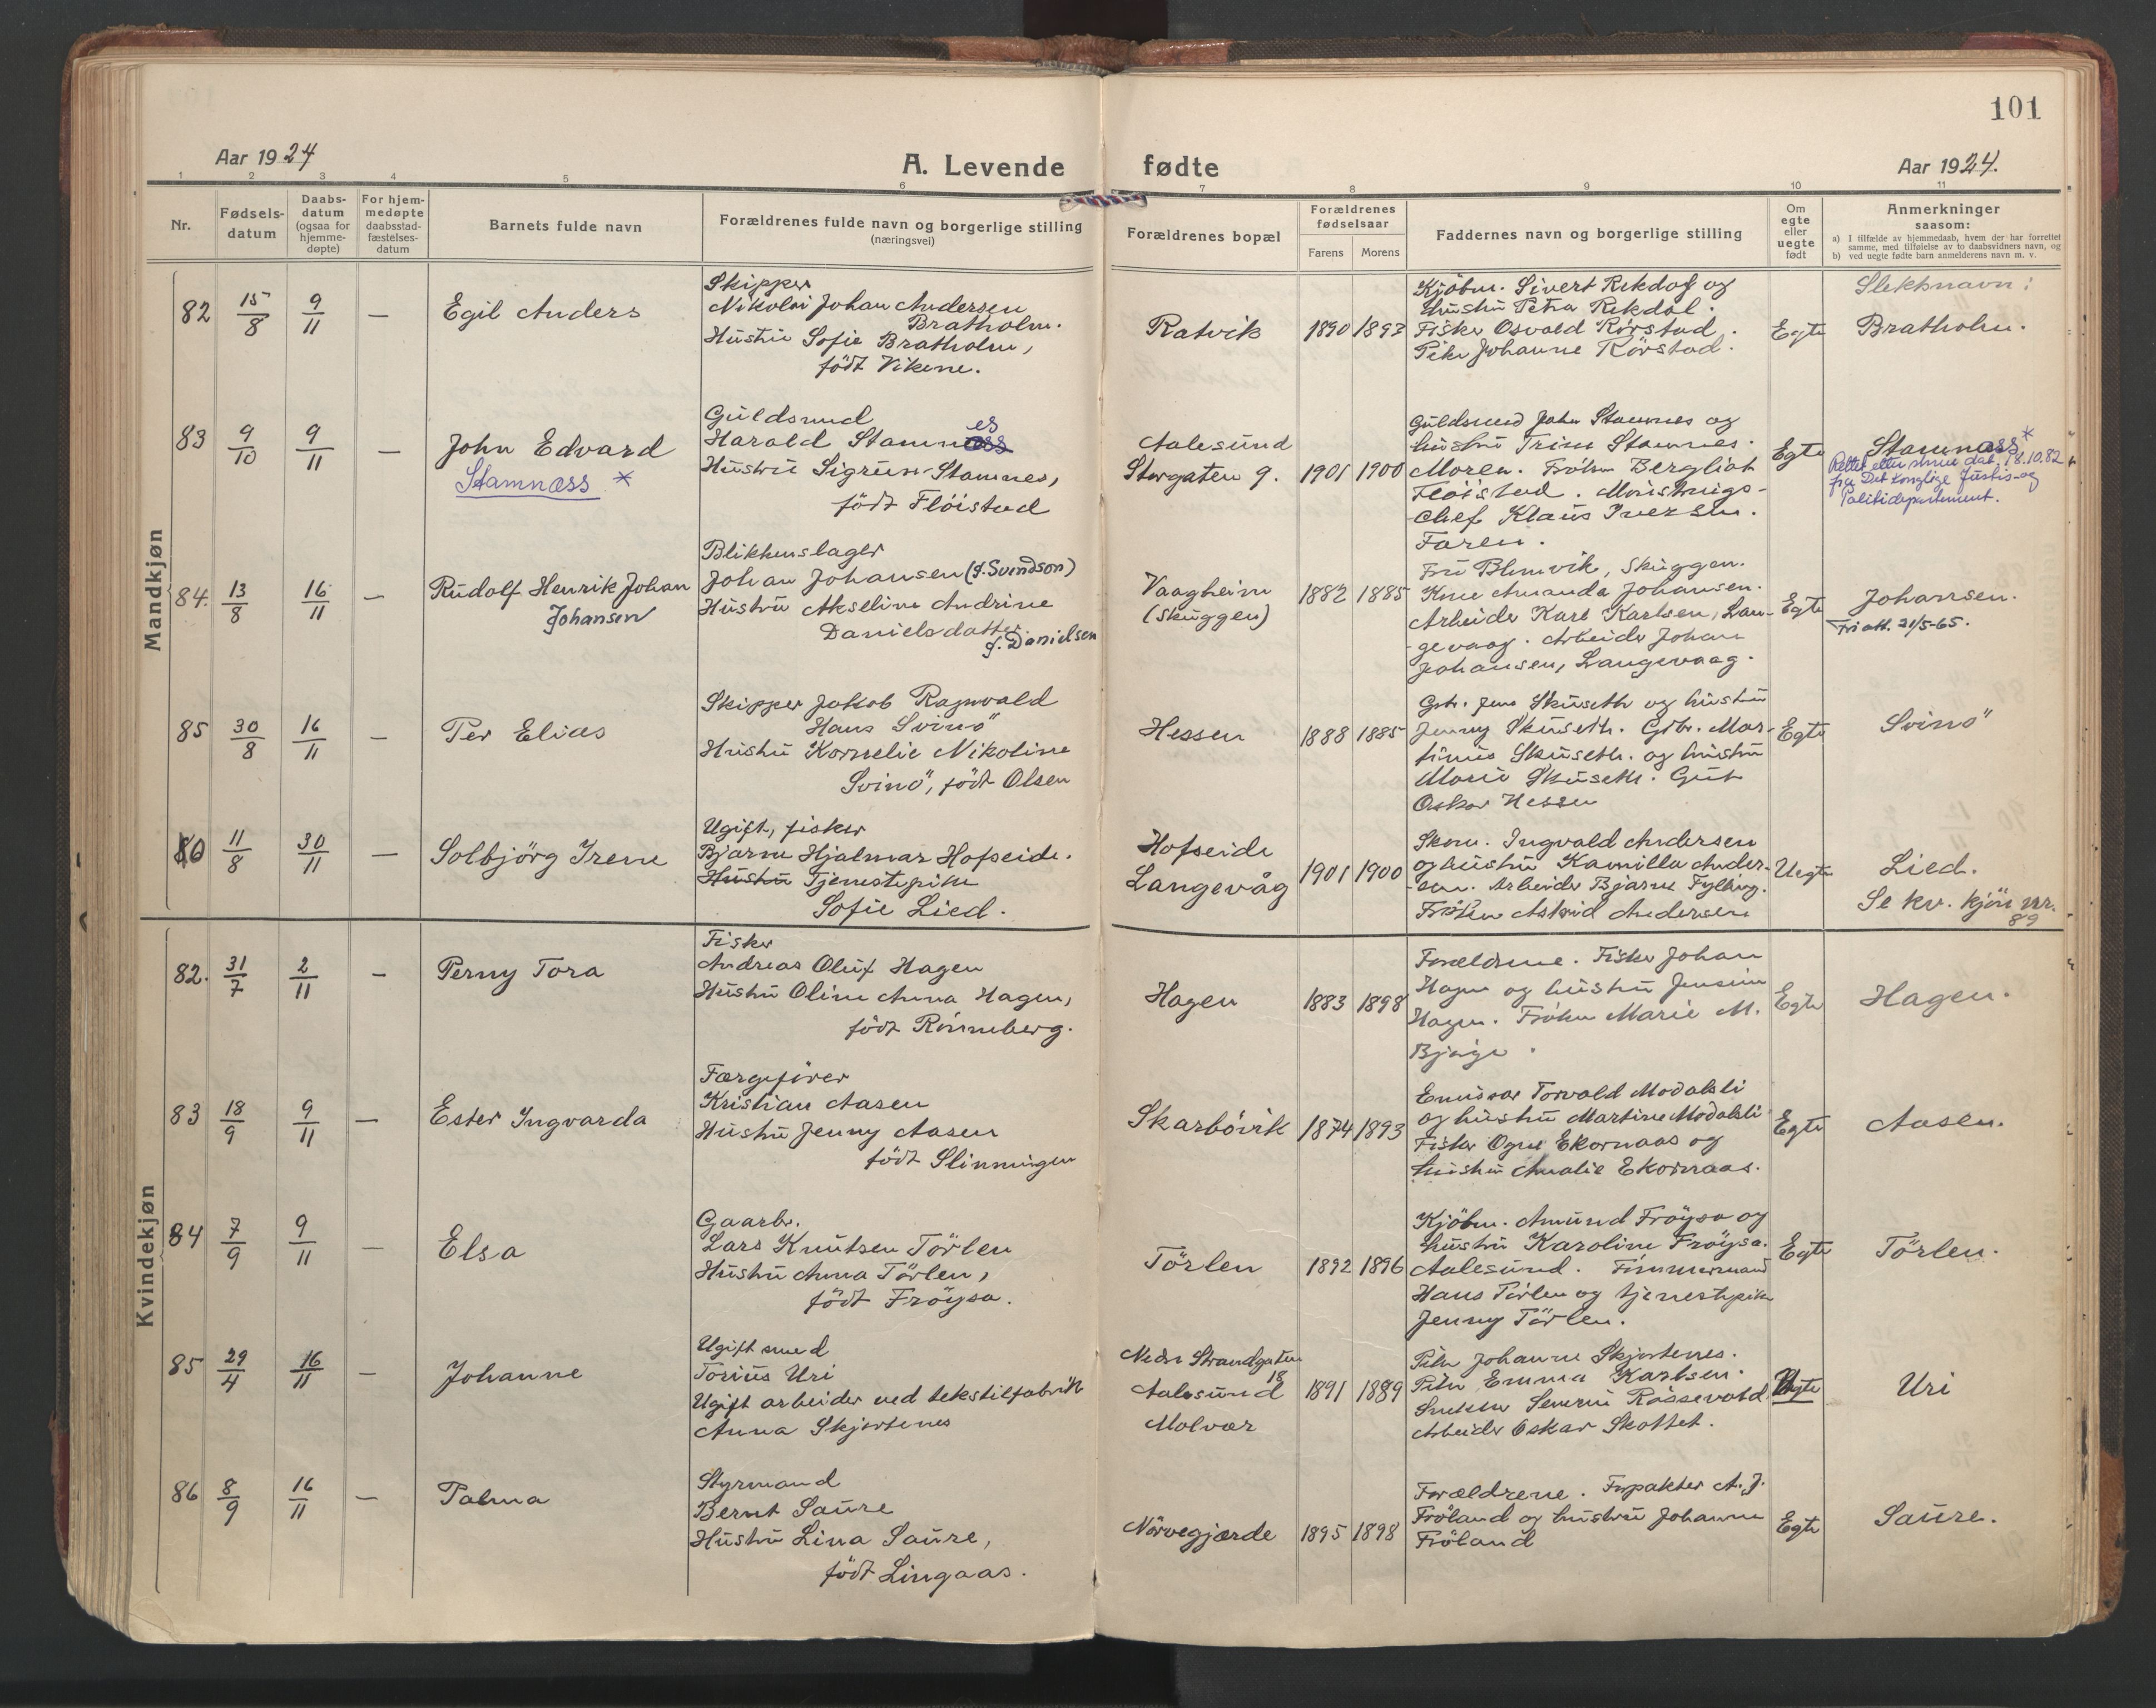 101
Aar 1924
A. Levende fødte
Aar 1924.
1 2 3 4 5 6 7 8 9 10 11
Nr.
Fødsels-
datum
Daabs-
datum
(ogsaa for
hjemme-
døpte)
For hjem-
medøpte
daabsstad-
fæstelses-
datum
Barnets fulde navn
Forældrenes fulde navn og borgerlige stilling
(næringsvei)
Forældrenes bopæl
Forældrenes
fødselsaar
Farens Morens
Faddernes navn og borgerlige stilling
Om
egte
eller
uegte
født
Anmerkninger
saasom:
a) I tilfælde av hjemmedaab, hvem der har forrettet
samme, med tilføielse av to daabsvidners navn, og
b) ved uegte fødte barn anmelderens navn m. v.
Mandkjøn
82 15/8 9/11 — Egil Anders
Skipper
Nikolai Johan Andersen
Bratholm.
Hustru Sofie Bratholm,
født Vikene.
Ratvik 1890 1892
Kjøbm. Sivert Rekdal og
hustru Petra Rekdal.
Fisker Osvald Rörstad.
Pike Johanne Rörstad.
Egte
Slektsnavn:
Bratholm.
83 9/10 9/11 — John Edvard
Stamnæss *
Guldsmed
Harald Stamnes
Hustru Sigrun Stamnes,
født Flöistad
Aalesund
Storgaten 9. 1901 1900
Guldsmed John Stamnes og
hustru Trine Stamnes.
Moren. Frøken Bergliot
Flöistad. Mønstrings-
chef Klaus Iversen.
Faren.
Egte
Stamnæss *
Rettet etter skriv dat. 18.10.82
fra Det kongelige Justis- og
Politidepartement.
84. 13/8 16/11 — Rudolf Henrik Johan
Johansen
Blikkenslager
Johan Johansen (f. Svendson)
Hustru Akseline Andrine
Danielsdatter.
f. Danielsen
Vaagheim
(Skuggen) 1882 1885
Fru Blomvik, Skuggen.
Kone Amanda Johansen.
Arbeider Karl Karlsen, Lan-
gevaag. Arbeider Johan
Johansen, Langevaag.
Egte
Johansen.
Fri att. 31/5-65.
85 30/8 16/11 — Per Elias
Skipper Jakob Ragnvald
Hans Svinö
Hustru Kornelie Nikoline
Svinö, født Olsen
Hessen 1888 1885
Gbr. Jens Skuseth og hustru
Jenny Skuseth. Gbr. Mar-
tinus Skuseth. og hustru
Marie Skuseth. Gut
Oskar Hessen
Egte
Svinö
80 11/8 30/11 — Solbjörg Irene
Ugift, fisker
Bjarne Hjalmar Hofseide.
Hustru Tjenestepike
Sofie Lied.
Hofseide
Langevåg 1901 1900
Skom. Ingvald Andersen
og hustru Kamilla Ander-
sen. Arbeider Bjarne Fylling.
Frøken Astrid Andersen
Uegte
Lied.
Se kv. kjön nr.
89
Kvindekjøn
82. 31/7 2/11 — Perny Tora
Fisker
Andreas Oluf Hagen
Hustru Oline Anna Hagen,
født Rönneberg.
Hagen 1883 1898
Forældrene. Fisker Johan
Hagen og hustru Jensine
Hagen. Frøken Marie M.
Egte
Hagen.
83 18/9 9/11 — Ester Ingvarda
Færgefører
Kristian Aasen
Hustru Jenny Aasen
født Slinningen
Skarbövik 1874 1893
Emissær Torvald Modalsli
og hustru Martine Modalsli
Fisker Ogne Ekornaas og
hustru Amalie Ekornaas.
Egte
Aasen.
84 7/9 9/11 — Elsa
Gaarbr.
Lars Knutsen Törlen
Hustru Anna Törlen,
født Fröysa.
Törlen 1892 1896
Kjöbm. Amund Fröysa og
hustru Karoline Fröysa.
Aalesund. Tömmermand
Hans Törlen og tjenestepike
Jenny Törlen.
Egte
Törlen.
85 29/4 16/11 — Johanne
Ugift smed
Torius Uri
Ugift arbeider ved tekstilfabrik
Anna Skjortenes
Nedre Strandgaten
18
Aalesund
Molvær 1891 1889
Pike Johanne Skjortenes.
Pike Emma Karlsen.
Snekker Severin Rössevold
Arbeider Oskar Skottet.
Uegte
Uri
86 8/9 16/11 — Palma
Styrmand
Bernt Saure
Hustru Lina Saure,
født Lingaas.
Nörvegjærde 1895 1898
Forældrene. Forpakter A. J.
Fröland og hustru Johanne
Fröland
Egte
Saure.